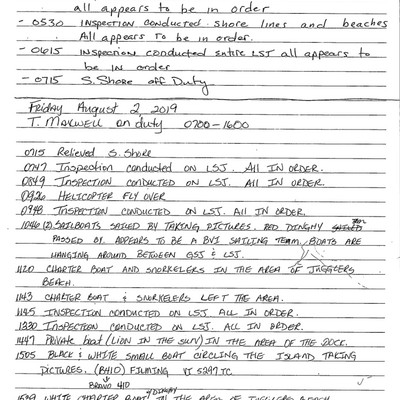 all appears to be in order
- 0530 Inspection conducted shore lines and beaches
All appears to be in order.
- 0615 Inspection conducted entire LSJ all appears to
be in order
- 0715 S. Shore off Duty
Friday August 2, 2019
T. Maxwell on duty 0700-1600
0715 Relieved S. Shore
0747 Inspection conducted on LSJ. All in order.
0849 Inspection conducted on LSJ. All in order.
0926 Helicopter fly over
0948 Inspection conducted on LSJ. All in order.
1046 (2) Sailboats sailed by taking pictures. Red dinghy
passed by. Appears to be a BVI sailing team. Boats are
hanging around between GSJ & LSJ.
1120 Charter boat and snorkelers in the area of Jugglers
Beach.
1143 Charter boat & snorkelers left the area.
1145 Inspection conducted on LSJ. All in order.
1230 Inspection conducted on LSJ. All in order.
1447 Private boat (Lion in the Sun) in the area of the dock.
1505 Black & white small boat circling the island taking
pictures. (BH10) Filming VI 5297 TC.
Brown 410
& dinghy
White charter boat in the area of Jugglers Beach